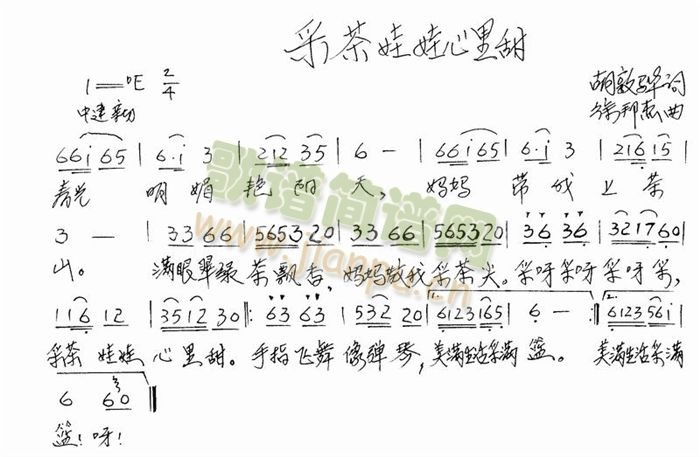 采茶娃娃心里甜
1=♭E 2/4
中速
词
曲
6 6 i 6 5 | 6 · i 3 | 2 1 2 3 5 | 6 - | 6 6 i 6 5 | 6 · i 3 | 2 1 6 1 5 |
春光 明媚 艳阳 天, 妈妈 带我 上茶
3 - | 3 3 6 6 | 5 6 5 3 2 0 | 3 3 6 6 | 5 6 5 3 2 0 | 3 6 3 6 | 3 2 1 7 6 0 |
山。 满眼翠绿 茶飘香, 妈妈教我 采茶尖。采呀采呀采呀采,
1 1 6 1 2 | 3 5 1 2 3 0 ‖: 6 3 6 3 | 5 3 2 2 0 | 6 1 2 3 1 6 5 | 6 - :‖ 6 1 2 3 5 6 i |
采茶 娃娃 心里甜。手指飞舞 像弹琴, 美满生活采满 篮。 美满生活采满
6 6 0 ‖
篮!呀!
歌谱简谱网
www.jianpu.cn